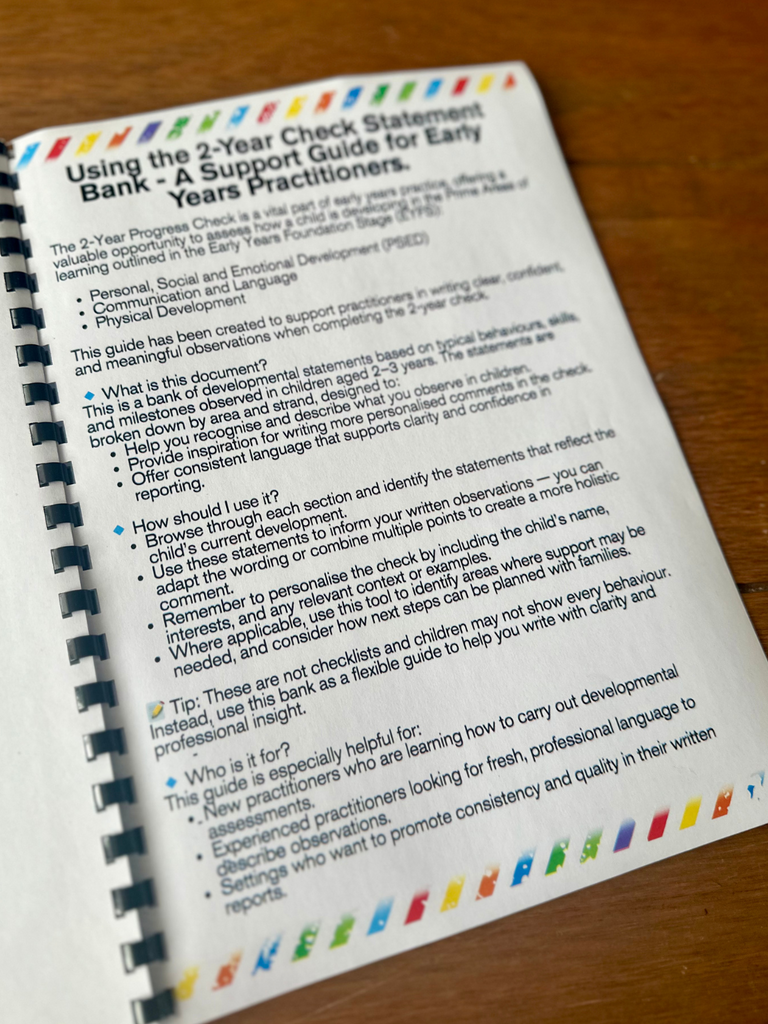 Using the 2-Year Check Statement
Bank - A Support Guide for Early
Years Practitioners.
The 2-Year Progress Check is a vital part of early years practice, offering a
valuable opportunity to assess how a child is developing in the Prime Areas of
learning outlined in the Early Years Foundation Stage (EYFS):
• Personal, Social and Emotional Development (PSED)
• Communication and Language
• Physical Development
This guide has been created to support practitioners in writing clear, confident,
and meaningful observations when completing the 2-year check.
🔹 What is this document?
This is a bank of developmental statements based on typical behaviours, skills,
and milestones observed in children aged 2–3 years. The statements are
broken down by area and strand, designed to:
• Help you recognise and describe what you observe in children.
• Provide inspiration for writing more personalised comments in the check.
• Offer consistent language that supports clarity and confidence in
reporting.
🔹 How should I use it?
• Browse through each section and identify the statements that reflect the
child's current development.
• Use these statements to inform your written observations — you can
adapt the wording or combine multiple points to create a more holistic
comment.
• Remember to personalise the check by including the child's name,
interests, and any relevant context or examples.
• Where applicable, use this tool to identify areas where support may be
needed, and consider how next steps can be planned with families.
📝 Tip: These are not checklists and children may not show every behaviour.
Instead, use this bank as a flexible guide to help you write with clarity and
professional insight.
🔹 Who is it for?
This guide is especially helpful for:
• New practitioners who are learning how to carry out developmental
assessments.
• Experienced practitioners looking for fresh, professional language to
describe observations.
• Settings who want to promote consistency and quality in their written
reports.